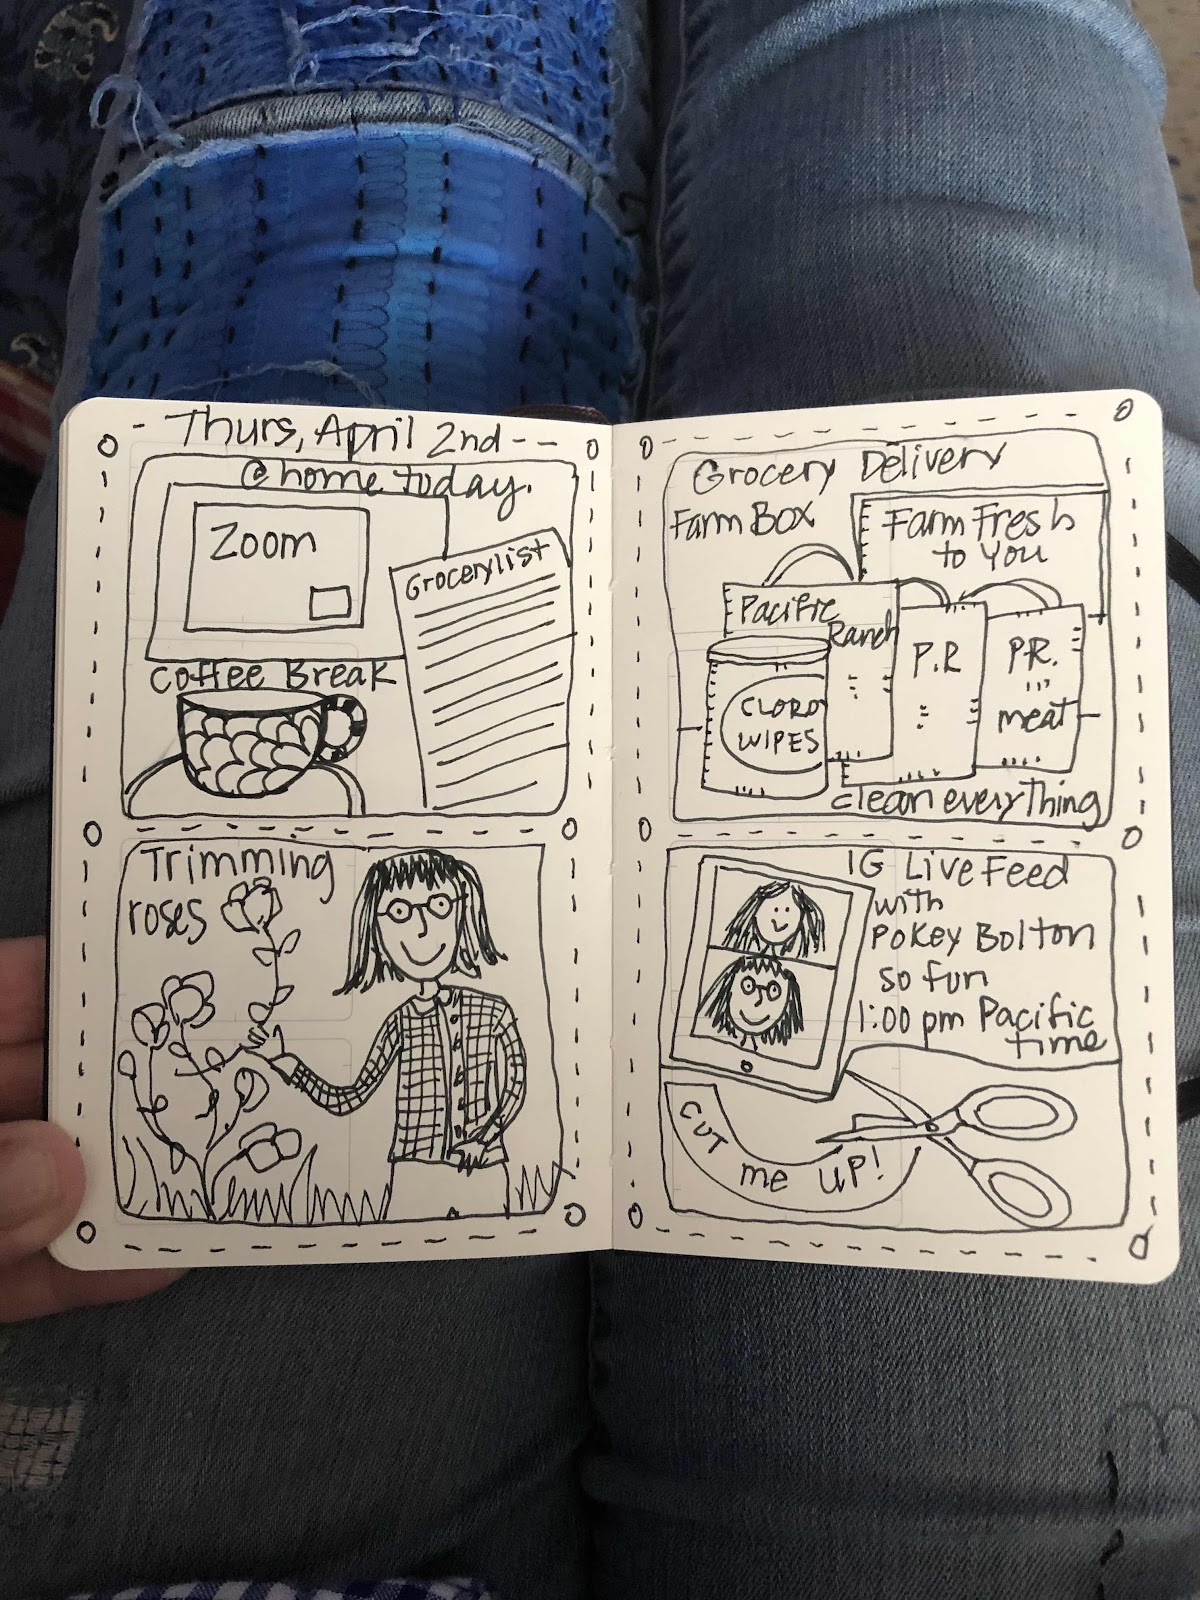 Thurs, April 2nd
@ home today.
Zoom
Grocery list
Coffee Break
Trimming
roses
Grocery Delivery
Farm Box
Farm Fresh
to You
Pacific
Ranch
P.R
P.R.
meat
CLORO
WIPES
clean everything
IG Live Feed
with
Pokey Bolton
so fun
1:00 pm Pacific
time
CUT me UP!